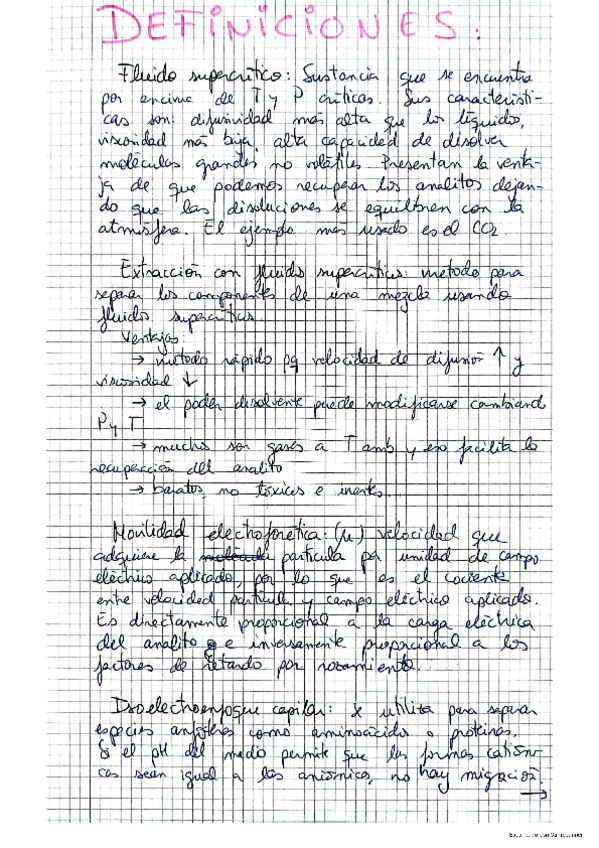 DEFINICIONES:
Fluido supercrítico: Sustancia que se encuentra
por encima de T y P críticas. Sus característi-
cas son: difusividad más alta que los líquidos,
viscosidad más baja, alta capacidad de disolver
moléculas grandes no volátiles. Presentan la venta-
ja de que podemos recuperar los analitos dejan-
do que las disoluciones se equilibren con la
atmósfera. El ejemplo más usado es el CO2.
Extracción con fluidos supercríticos: método para
separar los componentes de una mezcla usando
fluidos supercríticos.
Ventajas:
→ método rápido pq velocidad de difusión ↑ y
viscosidad ↓
→ el poder disolvente puede modificarse cambiand
P y T
→ muchos son gases a T amb y eso facilita la
recuperación del analito
→ baratos, no tóxicos e inertes.
Movilidad electroforética: (μ) velocidad que
adquiere la partícula por unidad de campo
eléctrico aplicado, por lo que es el cociente
entre velocidad partícula y campo eléctrico aplicado.
Es directamente proporcional a la carga eléctrica
del analito e inversamente proporcional a los
factores de retardo por rozamiento.
Isoelectroenfoque capilar: se utiliza para separar
especies anfóteras como aminoácidos o proteínas.
Si el pH del medio permite que las formas catióni-
cas sean igual a las aniónicas, no hay migración.
→